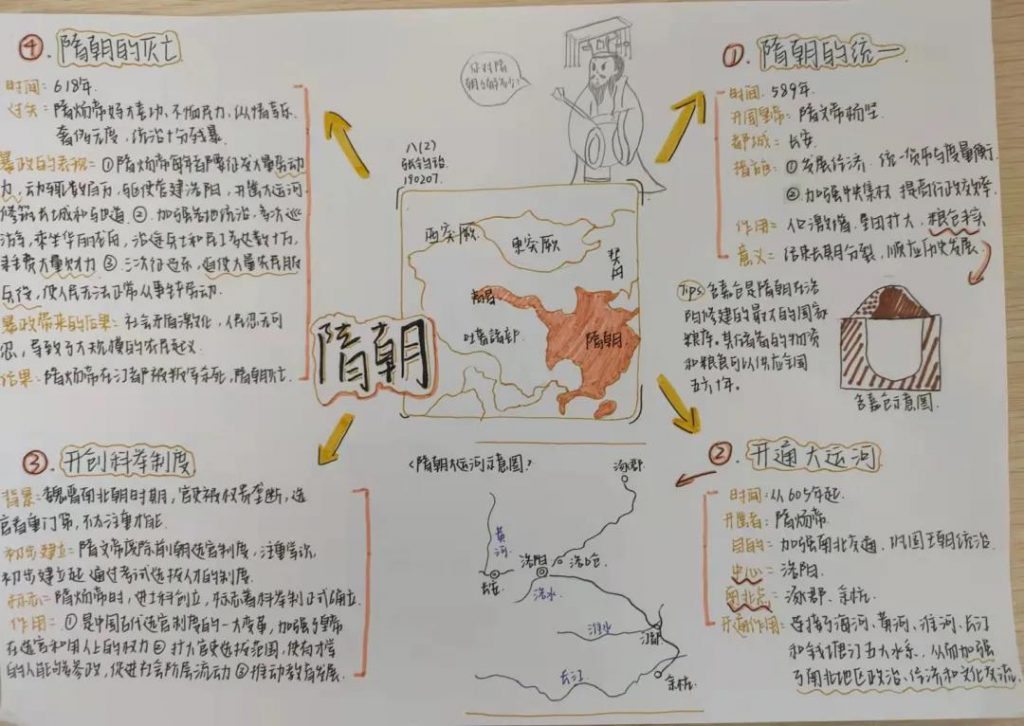 ④.隋朝的灭亡
时间:618年.
过失:隋炀帝好大喜功,不恤民力,纵情享乐.
奢侈无度,统治十分残暴.
暴政的表现:①隋炀帝每年都要征发大量劳动
力,动辄数百万,驱使营建洛阳,开凿大运河
修筑长城和驰道②.加强各地统治,多次巡
③三次征辽东,迫使大量农民服
兵役,使人民无法正常从事生产劳动.
暴政带来的后果:社会矛盾激化,人民忍无可
忍,导致了大规模的农民起义.
结果:隋炀帝在江都被叛军杀死,隋朝灭亡.
八(2)
190207.
西突厥
东突厥
契丹
高昌
吐蕃诸部
隋朝
隋朝
①.隋朝的统一
时间:589年.
开国皇帝:隋文帝杨坚
都城:长安
措施:①发展经济,统一货币与度量衡.
②加强中央集权 提高行政效率.
作用:人口激增,垦田扩大,粮仓丰实
意义:结束长期分裂,顺应历史发展
Tips 含嘉仓是隋朝在洛
阳修建的最大的国家
粮库.其储备的物资
和粮食可以供应全国
五六十年.
含嘉仓示意图.
③.开创科举制度
背景:魏晋南北朝时期,官吏被权贵垄断,选
官看重门第,不太注重才能.
初步建立:隋文帝废除前朝选官制度,注重学识,
初步建立起通过考试选拔人才的制度.
标志:隋炀帝时,进士科创立,标志着科举制正式确立.
作用:①是中国古代选官制度的一大变革,加强了皇帝
在选官和用人上的权力②扩大官吏选拔范围,使有才学
的人能够参政,促进社会阶层流动③推动教育发展.
《隋朝大运河示意图》
涿郡.
黄河
洛阳
洛口
长安
洛水
淮水
江都
长江
余杭.
②.开通大运河
时间:从605年起.
开凿者:隋炀帝
目的:加强南北交通,巩固王朝统治.
中心:洛阳.
南北点:涿郡、余杭.
开通作用:连接了海河、黄河、淮河、长江
和钱塘江五大水系.从而加强
了南北地区政治、经济和文化交流.